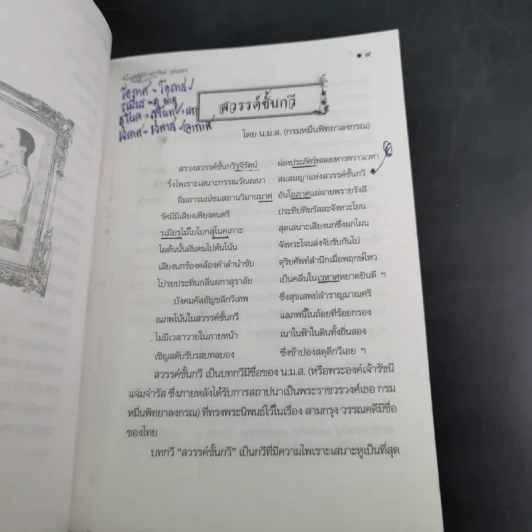 สวรรค์ชั้นกวี
โดย น.ม.ส. (กรมหมื่นพิทยาลงกรณ)
สรวงสวรรค์ชั้นกวีรุจิรัตน์ ผ่องประภัศร์พลอยหาวพราวเวหา
ริ้งไพเราะเสนาะกรรณวัณณนา สมสมญาแห่งสวรรค์ชั้นกวี
อิ่มอารมณ์ชมสถานวิมานมาศ อันโอภาสแผ่ผายพรายรังสี
รัศมีมีเสียงเพียงดนตรี ประทีปทีฆรัสสะจังหวะโยน
รเมียรไม้ใบโบกสุโนคเกาะ สุดเสนาะเสียงนกซึ่งผกโผน
โผต้นนั้นผันตนไปต้นโน้น จังหวะโจนส่งจับรับกันไป
เสียงนกร้องคล้องคำลำนำขับ ดุริยศัพท์สำนึกเมื่อพฤกษ์ไหว
โปรยประทิ่นกลิ่นผกาสุราลัย เป็นคลื่นในเวหาศหยาดยินดี ฯ
บังคมคัลอัญชลีกวีเทพ ซึ่งสุขเสพย์สำราญมาณศรี
ณภพโน้นในสวรรค์ชั้นกวี แลภพนี้ในถ้อยที่ร้อยกรอง
ไม่มีเวลาวายในภายหน้า เนาในฟ้าในดินทั้งถิ่นสอง
เชิญสดับรับรสบทลบอง ซึ่งข้าปองสดุดีกวีเอย ฯ
สวรรค์ชั้นกวี เป็นบทกวีมีชื่อของ น.ม.ส. (หรือพระองค์เจ้ารัชนี
แจ่มจำรัส ซึ่งภายหลังได้รับการสถาปนาเป็นพระราชวรวงศ์เธอ กรม
หมื่นพิทยาลงกรณ) ที่ทรงพระนิพนธ์ไว้ในเรื่อง สามกรุง วรรณคดีมีชื่อ
ของไทย
บทกวี "สวรรค์ชั้นกวี" เป็นกวีที่มีความไพเราะเสนาะหูเป็นที่สุด